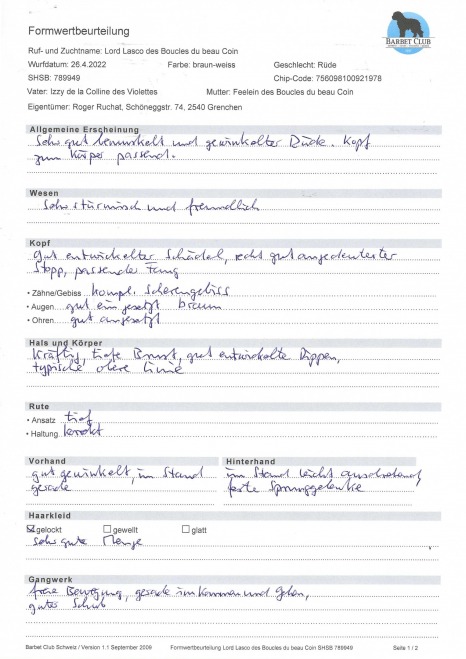 Formwertbeurteilung
BARBET CLUB
Ruf- und Zuchtname: Lord Lasco des Boucles du beau Coin
Wurfdatum: 26.4.2022 Farbe: braun-weiss Geschlecht: Rüde
SHSB: 789949 Chip-Code: 756098100921978
Vater: Izzy de la Colline des Violettes Mutter: Feelein des Boucles du beau Coin
Eigentümer: Roger Ruchat, Schöneggstr. 74, 2540 Grenchen
Allgemeine Erscheinung
Sehr gut bemuskelt und gewinkelter Rüde. Kopf
zum Körper passend.
Wesen
Sehr stürmisch und freundlich
Kopf
gut entwickelter Schädel, recht gut angedeuteter
Stopp, passender Fang
• Zähne/Gebiss kompl. Scherengebiss
• Augen gut eingesetzt braun
• Ohren gut angesetzt
Hals und Körper
Kräftig, tiefe Brust, gut entwickelte Rippen,
typische obere Linie
Rute
• Ansatz tief
• Haltung korrekt
Vorhand Hinterhand
gut gewinkelt, im Stand im Stand leicht ausdrehend,
gerade feste Sprunggelenke
Haarkleid
gelockt gewellt glatt
sehr gute Menge
Gangwerk
freie Bewegung, gerade im Kommen und Gehen,
guter Schub
Barbet Club Schweiz / Version 1.1 September 2009 Formwertbeurteilung Lord Lasco des Boucles du beau Coin SHSB 789949 Seite 1 / 2